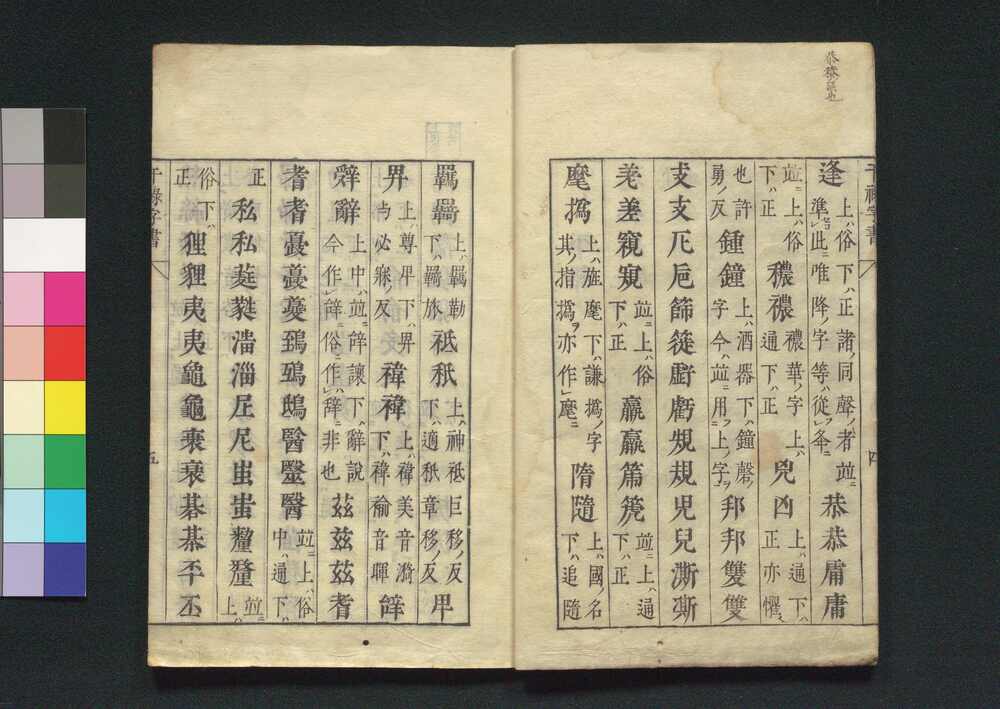 逢 上俗下正諸同聲者並準此唯降字等從夅 恭恭庸庸
並上俗下正 穠禯 禯華字上通下正 兇凶 上通下正亦懼
也許勇反 鍾鐘 上酒器下鐘磬字今並用上字 邦邦雙雙
支支卮巵篩簁戲虧規規児兒澌凘
差差窺窺 並上俗下正 羸羸篇箎 並上通下正
麾撝 上旌麾下謙撝字其指撝亦作麾 隋隨 上國名下追隨
羈羇 上羈勒下羇旅 祗秖 上神祗巨移反下適秖章移反 卑
畀 上尊卑下畀与必寐反 褘褘 上褘美音漪下褘褕音暉 辤
辤辭 上中並辤讓下辭說今作辞俗作辝非也 茲兹茲耆
耆耆憂𡕷鵄鴟鴟醫毉醫 並上俗中通下
正 私私蕤蕤湽淄𡰥尼蚩蚩釐釐 並上
俗下正 狸貍夷夷龜龜衰衰碁棊㔻丕
干祿字書
四
干祿字書
五